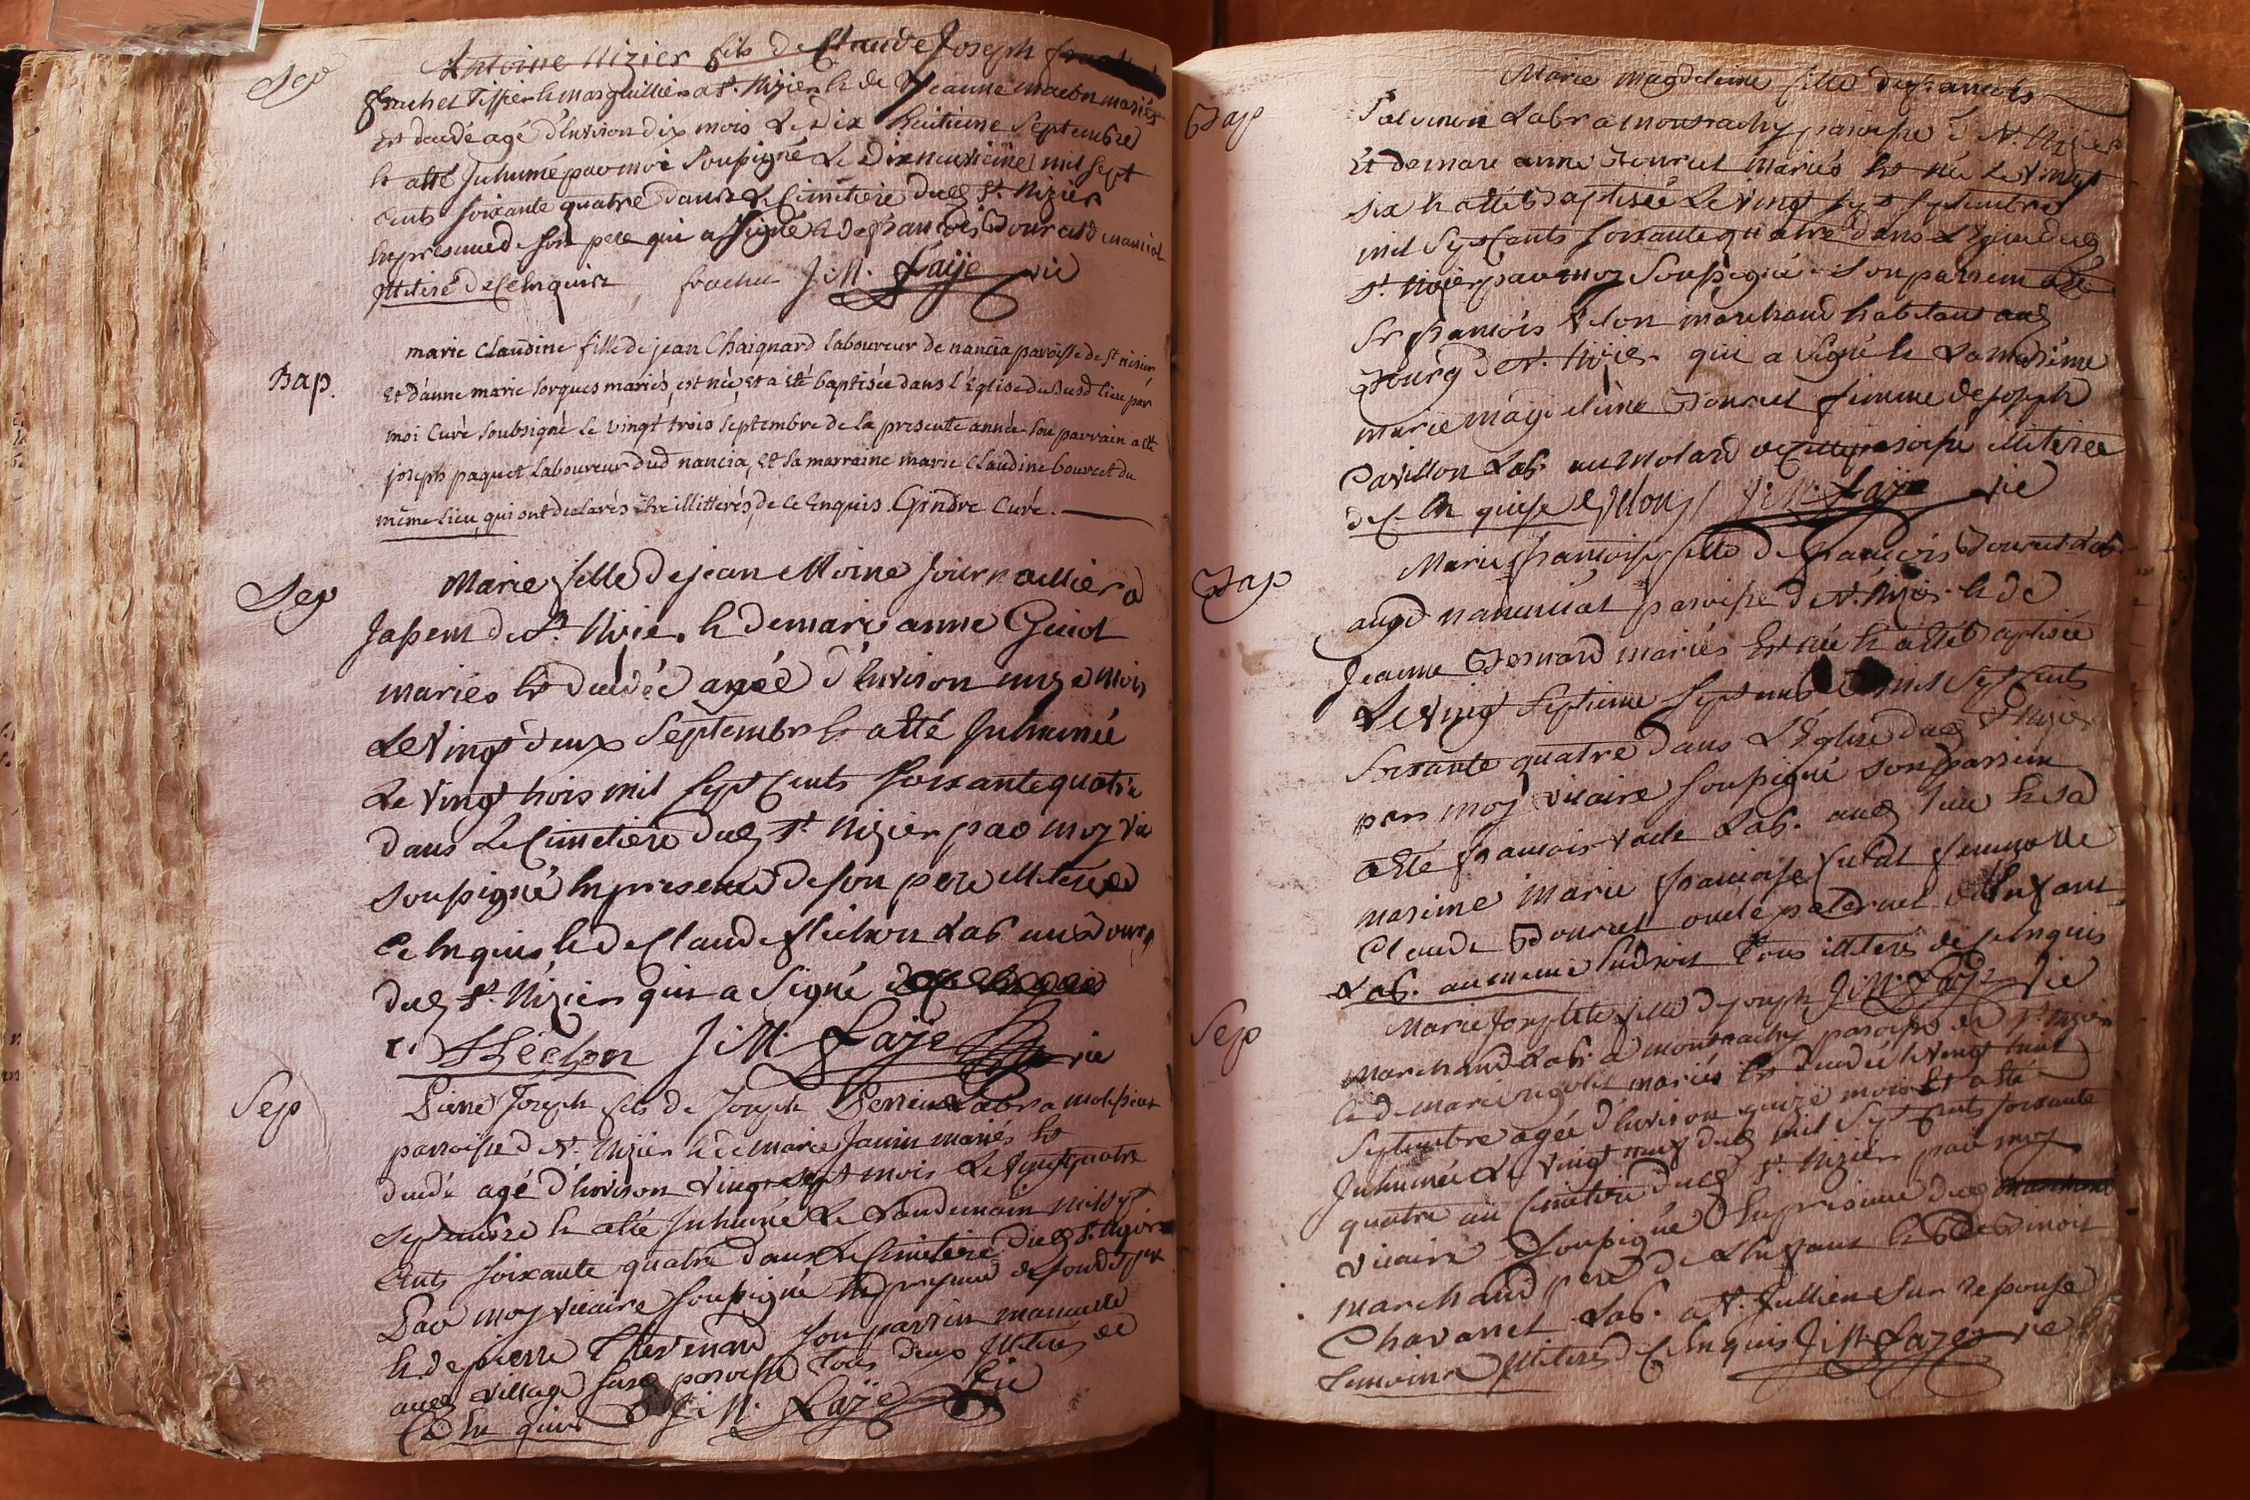 Sep
Antoine Nizier fils de Claude Joseph
frachet Tissier & Marguillier a St. Nizier & de Jeanne maron mariés
est decedé agé d'Environ dix mois Le Dix huitieme Septembre
& atté Juhumé par moi Soussigné Le Dixneuvieme mil sept
cents soixante quatre dans Le Cimetiere dud St. Nizier
En presence de son pere qui a signé & de francois Bourcet de mancial
illiteré de Ce Enquis frachet J: M. Faÿe vic
Bap.
marie Claudine fille de jean Chaignard laboureur de nancia paroisse de St nisier
Et d'anne marie Sorgues mariés, est née et a été baptisée dans l'Eglise du Susd lieu par
moi Curé soubsigné le vingt trois septembre de la presente année son parrain a été
joseph paquet laboureur dud nancia, et sa marraine marie Claudine bourcet du
même lieu, qui ont declarés être illitterés, de ce Enquis. Gindre Curé.
Sep
Marie fille de jean Moine journallier a
Jassem de St. Nizier & de marie anne Guiot
mariés Est decedée agée d'Environ unze mois
Le Vingt deux Septembre & atté Juhumée
Le Vingt trois mil Sept Cents Soixante quatre
dans Le Cimetiere dud St. Nizier par moy Vic
soussigné En presence de son pere illiteré de
Ce Enquis & de Claude flechon Lab. au Bourg
dud St. Nizier qui a Signé
Flechon J: M. Faÿe vic
Sep
Pierre Joseph fils de Joseph Perrin Labr a
parroisse de St. Nizier & de Marie Janin mariés Est
decedé agé d'Environ Vingt sept mois Le Vingt quatre
Septembre & atté Juhumé Le Landemain mil sept
Cents soixante quatre dans Le Cimetiere dud St. Nizier
Par moy vicaire soussigné En presence de son d. pere
& de pierre Thevenard son parrin
aud village susd paroisse tous deux Illiterés de
Ce Enquis J: M. Faÿe Vic
Bap
Marie Magdeleine fille de francois
Salomon Labr a montrachy paroisse de St. Nizier
Et de marie anne Bourcet mariés Est née Le Vingt
six & atté Baptisée Le Vingt sept Septembre
mil Sept Cents soixante quatre dans L'Eglise dud
St. Nizier par moy Soussigné Son parrin atté
Sr francois Velon marchand habitant aud
Bourg de St. Nizier qui a Signé & La marine
marie magdeleine Bourcet femme de Joseph
Pavillon Lab. au molard paroisse illiterée
de Ce En quise J: M. Faÿe vic
Bap
Marie francoise fille de francois Bourcet Lab.
aud nanciat paroisse de St. Nizier & de
Jeanne Bernard mariés Est née & atté Baptisée
Le Vingt Septieme Septembre mil Sept Cents
Soixante quatre dans L'Eglise dud St. Nizier
par moy vicaire soussigné Son parrin
atté francois Lab. aud Lieu & sa
marine Marie francoise femme de
Claude Bourcet oncle paternel de L'Enfant
Lab. au meme Endroit Tous illiterés de Ce Enquis
J: M. Faÿe Vic
Sep
Marie Josephte fille de Joseph
Marchand Lab. a montrachy paroisse de St. Nizier
& de marie mariés Est decedée Le Vingt huit
Septembre agée d'Environ quinze mois Et atté
Juhumée Le Vingt neuf dud mil Sept Cents soixante
quatre au Cimetiere dud St. Nizier par moy
vicaire Soussigné En presence dud
Marchand pere de L'Enfant & de Benoit
Chavanet Lab. a St. Jullien Sur reysouse
temoins Illiterés de Ce Enquis J: M. Faÿe vic